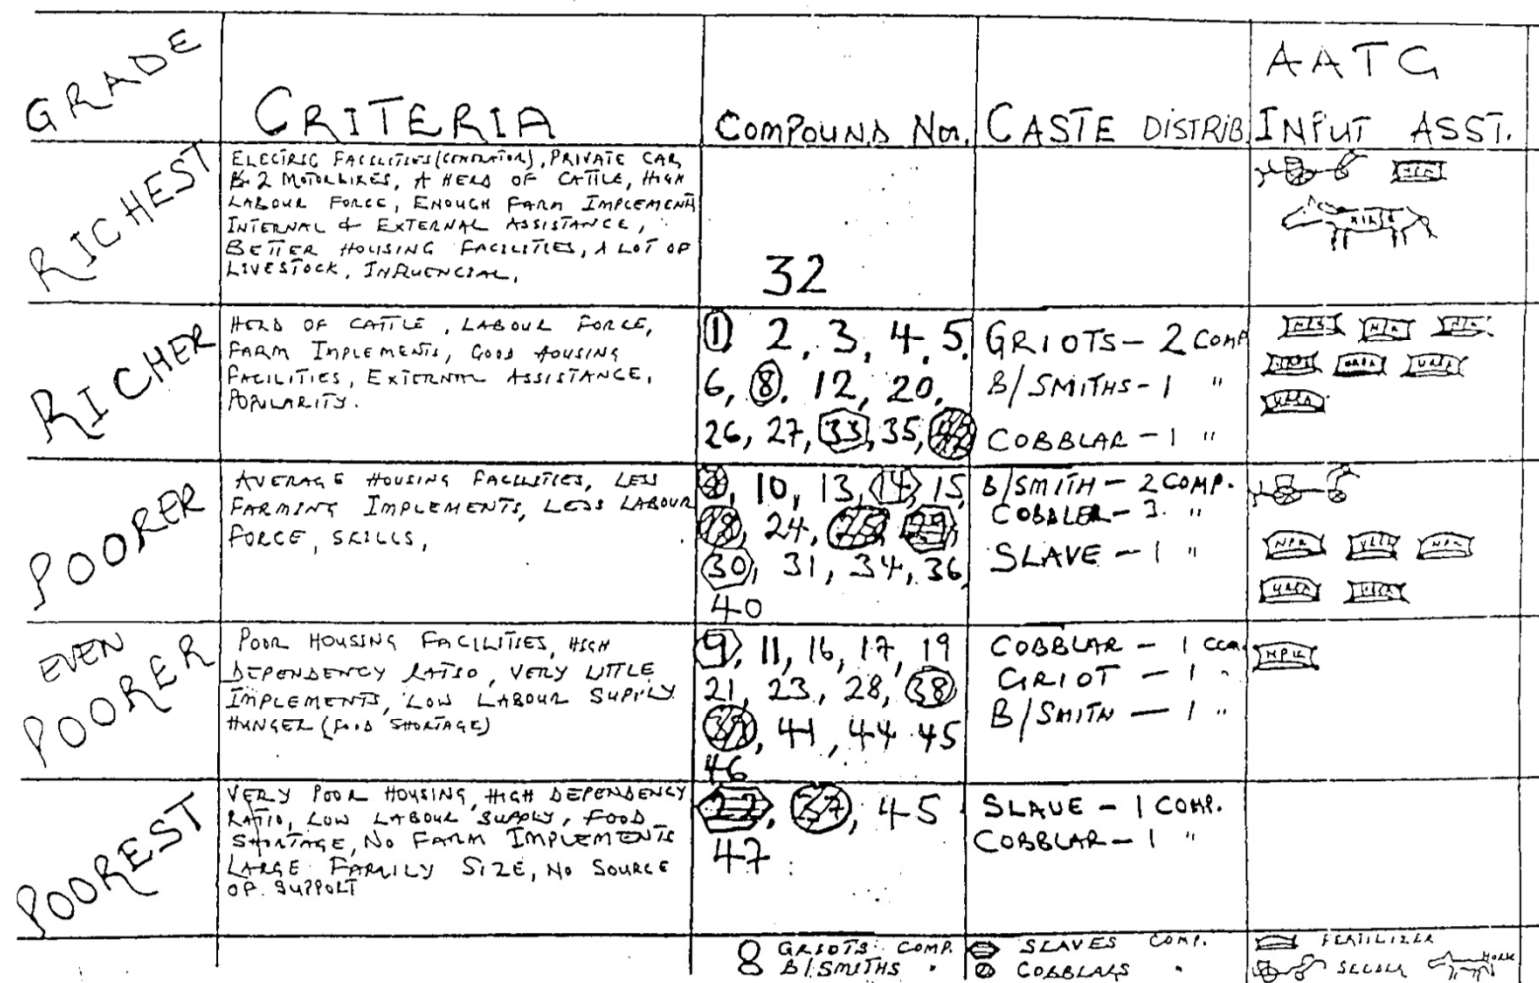 GRADE
CRITERIA
COMPOUND Nos.
CASTE DISTRIB.
AATG
INPUT ASST.
RICHEST
ELECTRIC FACILITIES (GENERATOR), PRIVATE CAR,
& 2 MOTORBIKES, A HERD OF CATTLE, HIGH
LABOUR FORCE, ENOUGH FARM IMPLEMENTS
INTERNAL & EXTERNAL ASSISTANCE,
BETTER HOUSING FACILITIES, A LOT OF
LIVESTOCK, INFLUENCIAL.
32
RICHER
HERD OF CATTLE, LABOUR FORCE,
FARM IMPLEMENTS, GOOD HOUSING
FACILITIES, EXTERNAL ASSISTANCE,
POPULARITY.
1 2, 3, 4, 5,
6, 8, 12, 20,
26, 27, 33, 35, 42
GRIOTS - 2 COMP
B/SMITHS - 1 "
COBBLAR - 1 "
POORER
AVERAGE HOUSING FACILITIES, LESS
FARMING IMPLEMENTS, LESS LABOUR
FORCE, SKILLS,
10, 13, 14, 15
18, 24, 25, 29,
30, 31, 34, 36,
40
B/SMITH - 2 COMP.
COBBLER - 3 "
SLAVE - 1 "
NPK
UREA
EVEN
POORER
POOR HOUSING FACILITIES, HIGH
DEPENDENCY RATIO, VERY LITTLE
IMPLEMENTS, LOW LABOUR SUPPLY
HUNGER (FOOD SHORTAGE)
9, 11, 16, 17, 19
21, 23, 28, 38
39, 41, 44 45
46
COBBLAR - 1 COM
GRIOT - 1 "
B/SMITH - 1 "
NPK
POOREST
VERY POOR HOUSING, HIGH DEPENDENCY
RATIO, LOW LABOUR SUPPLY, FOOD
SHORTAGE, NO FARM IMPLEMENTS
LARGE FAMILY SIZE, NO SOURCE
OF SUPPORT
22, 37, 45
47
SLAVE - 1 COMP.
COBBLAR - 1 "
GRIOTS COMP.
B/SMITHS "
SLAVES COMP.
COBBLARS "
FERTILIZER
SEEDER
HORSE